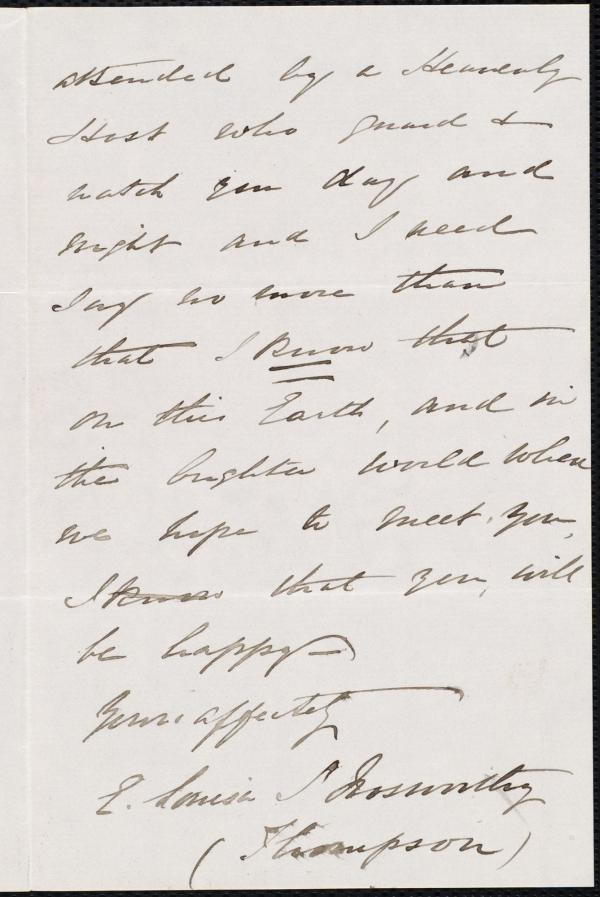 attended by a Heavenly
Host who guard &
watch you day and
night and I need
say no more than
that I know that
on this Earth, and in
the brighter world when
we hope to meet you,
I know that you, will
be happy
Yours affectly
E. Louisa S
(Thompson)